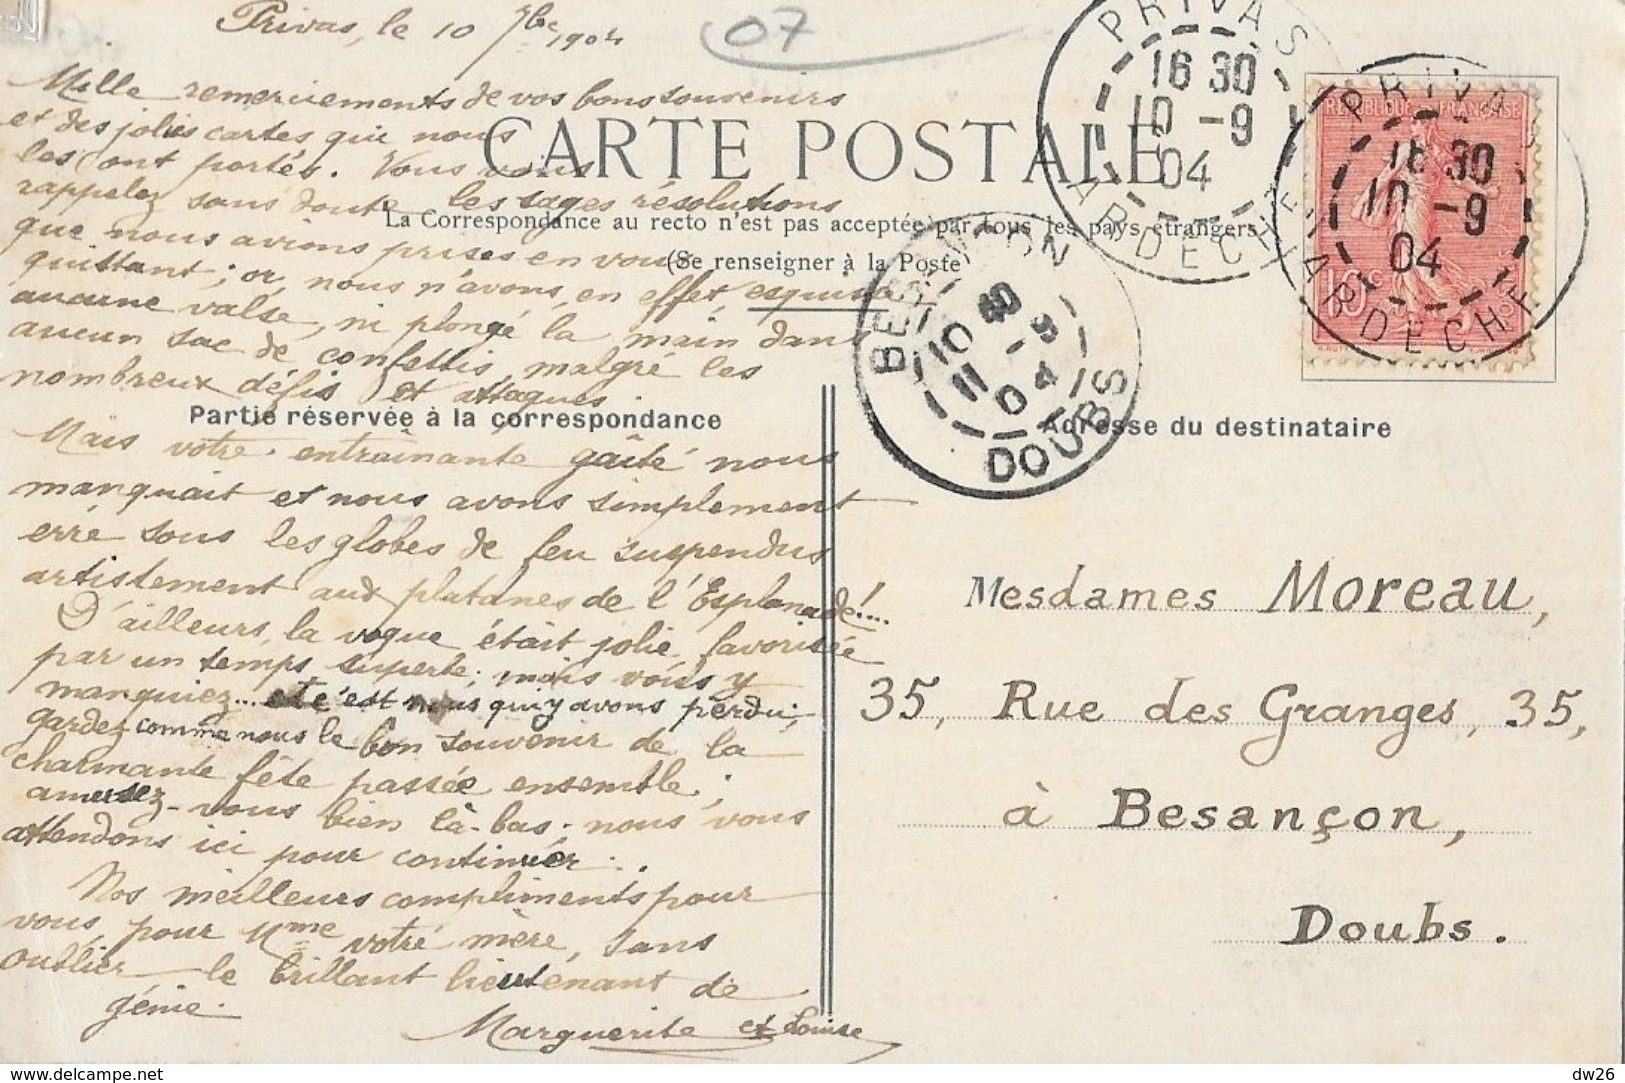 Privas, le 10 7bre 1904
07
Mille remerciements de vos bons souvenirs
et des jolies cartes qui nous
les ont portés. Vous vous
rappelez sans doute les sages résolutions
que nous avions prises en vous
quittant; or, nous n'avons, en effet esquissé
aucune valse, ni plongé la main dans
aucun sac de confettis, malgré les
nombreux défis et attaques.
Mais votre entraînante gaîté nous
manquait et nous avons simplement
erré sous les globes de feu suspendus
artistement aux platanes de l'Esplanade!...
D'ailleurs, la vogue était jolie, favorisée
par un temps superbe; mais vous y
manquiez... et c'est nous qui y avons perdu;
gardez comme nous le bon souvenir de la
charmante fête passée ensemble;
amusez-vous bien là-bas; nous vous
attendons ici pour continuer.
Nos meilleurs compliments pour
vous, pour Mme votre mère, sans
oublier le brillant lieutenant de
génie.
Marguerite et Louise
CARTE POSTALE
La Correspondance au recto n'est pas acceptée par tous les pays étrangers
(Se renseigner à la Poste
Partie réservée à la correspondance
Adresse du destinataire
PRIVAS
16 30
10 -9
04
ARDECHE
REPUBLIQUE FRANÇAISE
10
PRIVAS
16 30
10 -9
04
ARDECHE
BESANÇON
10 40
11 -9
04
DOUBS
Mesdames Moreau,
35, Rue des Granges, 35,
à Besançon,
Doubs.
www.delcampe.net
dw26